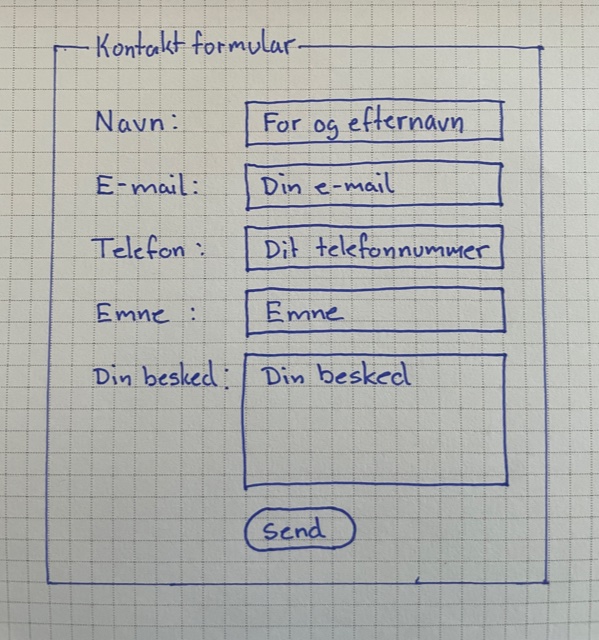 Kontakt formular
Navn: For og efternavn
E-mail: Din e-mail
Telefon: Dit telefonnummer
Emne : Emne
Din besked: Din besked
Send